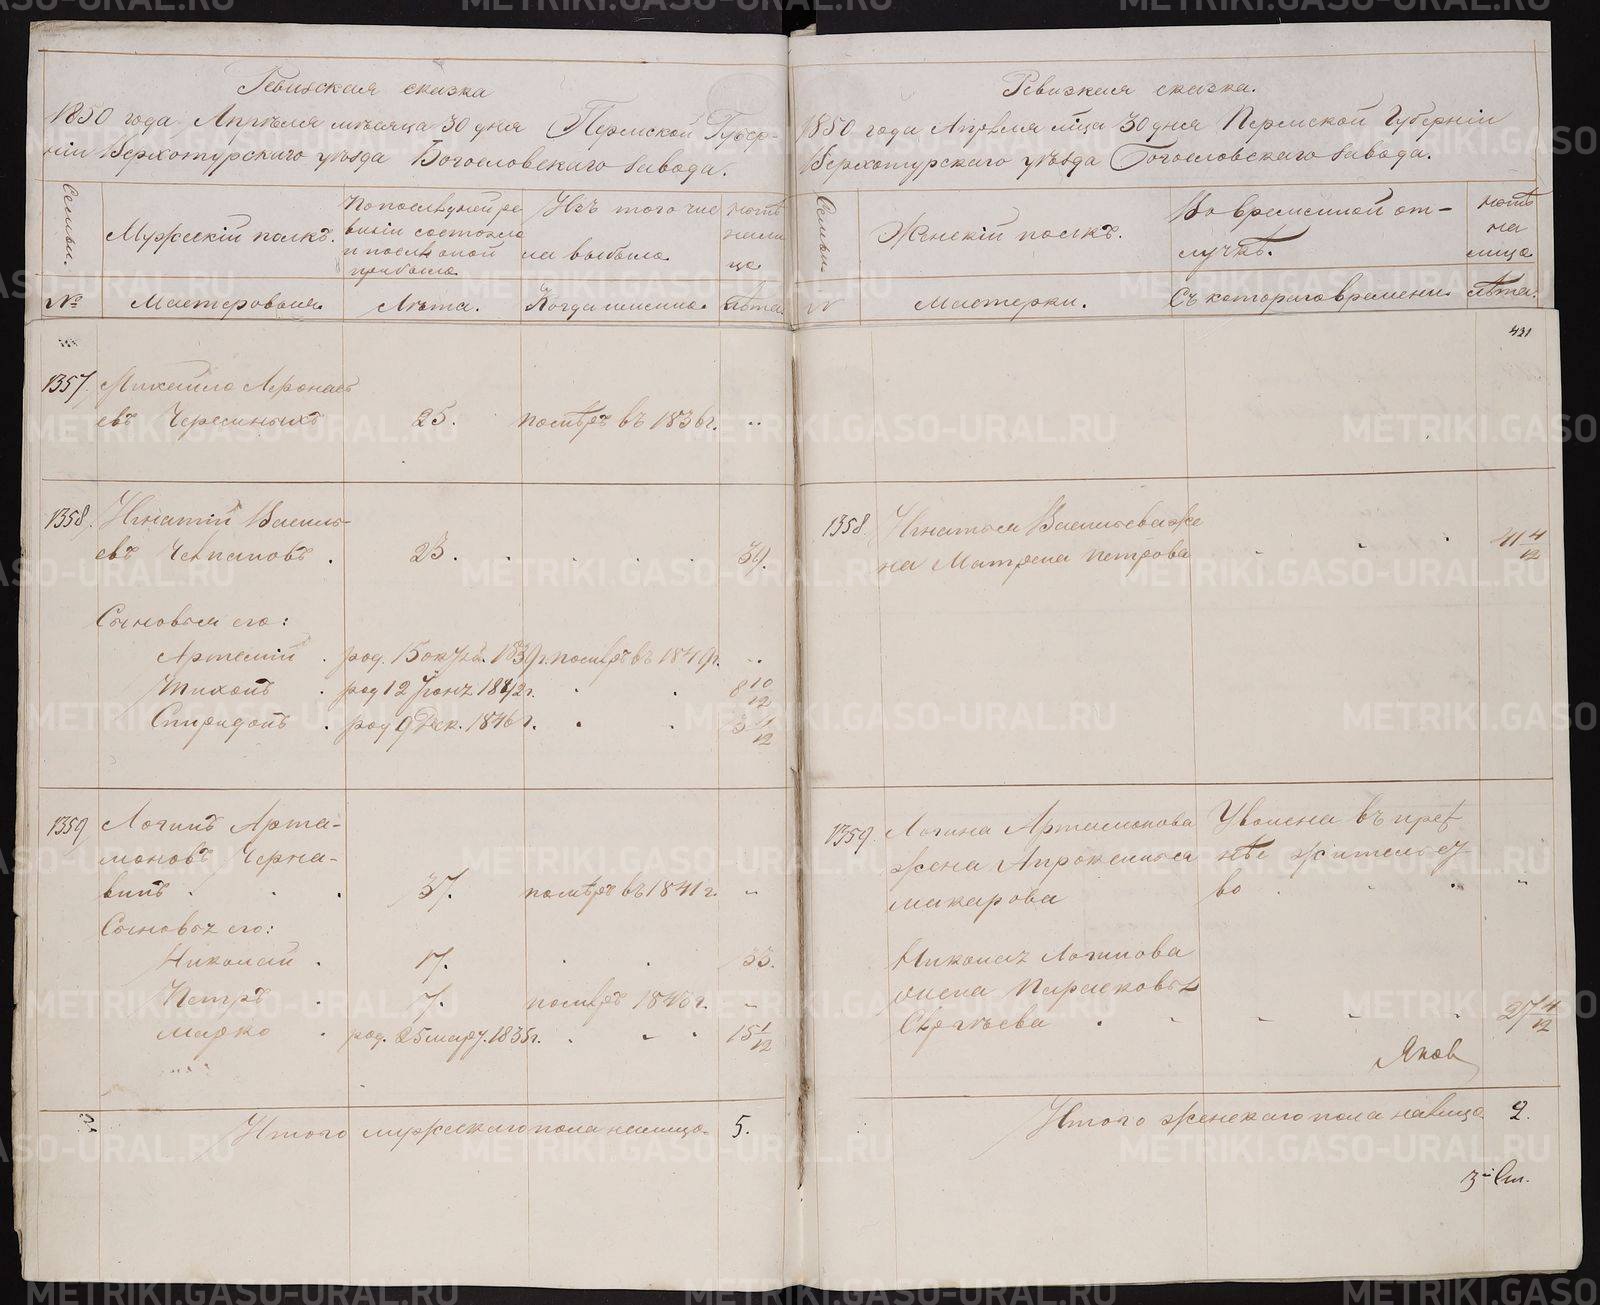 Ревизская сказка
1850 года Апреля месяца 30 дня Пермской Губер-
ніи Верхотурскаго уезда Богословскаго завода.
Семьи.
Мужескій полкъ.
По последней ре
визіи состояло
и после оной
прибыло
Изъ того чис
ла выбыло
ныне
нали
цо
№
Мастеровыя.
Лета.
Когда именно.
лета
1357. Михайло Афонась
евъ 25. померъ въ 1836 г. "
1358. Игнатій Василь-
евъ Чекпаповъ . 23. . . . . 39.
Сыновья его:
Артемій . род. 15 1839 г. померъ въ 1849 г. "
Тихонъ . род 12 Іюня 1842 г. . . 8 10/12
Спиридонъ . род 9 Дек. 1846 г. . . 3 4/12
1359 Логинъ Арта-
моновъ Черна-
винъ . . . 37. померъ въ 1841 г. "
Сыновья его:
Николай . 17. . . 33.
Петръ . 7. померъ 1846 г. "
Марко . род. 25 мар. 1835 г. . . . 15 1/12
Итого мужескаго пола налицо 5.
Ревизкая сказка.
1850 года Апреля м͠ца 30 дня Пермской Губерніи
Верхотурскаго уезда Богословскаго завода.
Семьи
Женскій полкъ.
Во временной от-
лучке.
ныне
на
лицо
№
Мастерки.
Съ котораго времени.
лета.
431
1358 Игнатья Васильева же
на Матрена Петрова . . . 41 4/12
1359. Логина Артамонова Уволена въ преж
жена Апроксинья нее жительст
Макарова во . . . "
Николая Логинова
жена Парасковья
Сергеева . . . . . 27 4/12
Яков
Итого женскаго пола налицо 2.
3-й Ст.
METRIKI.GASO-URAL.RU